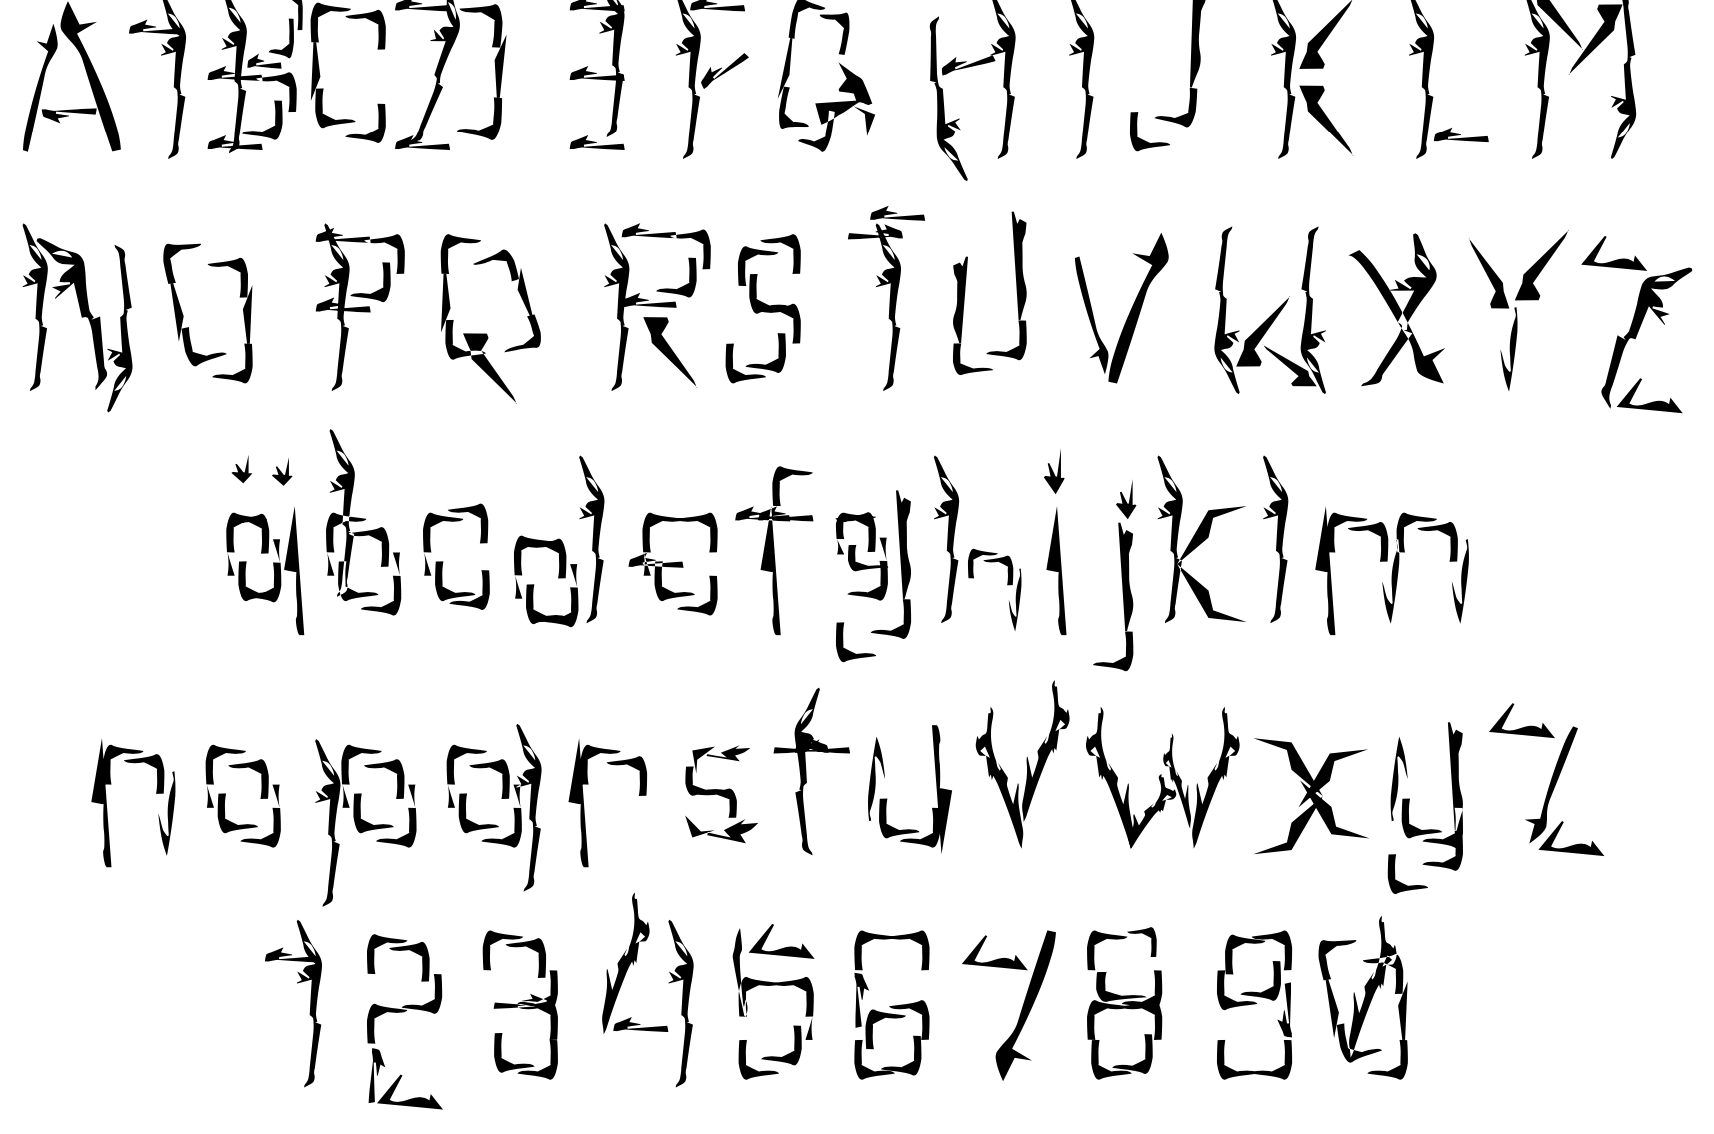 A1BCDEFGHIJKLM
NOPQRSTUVWXYZ
äbcdefghijklm
nopqrstuvwxyz
1234567890